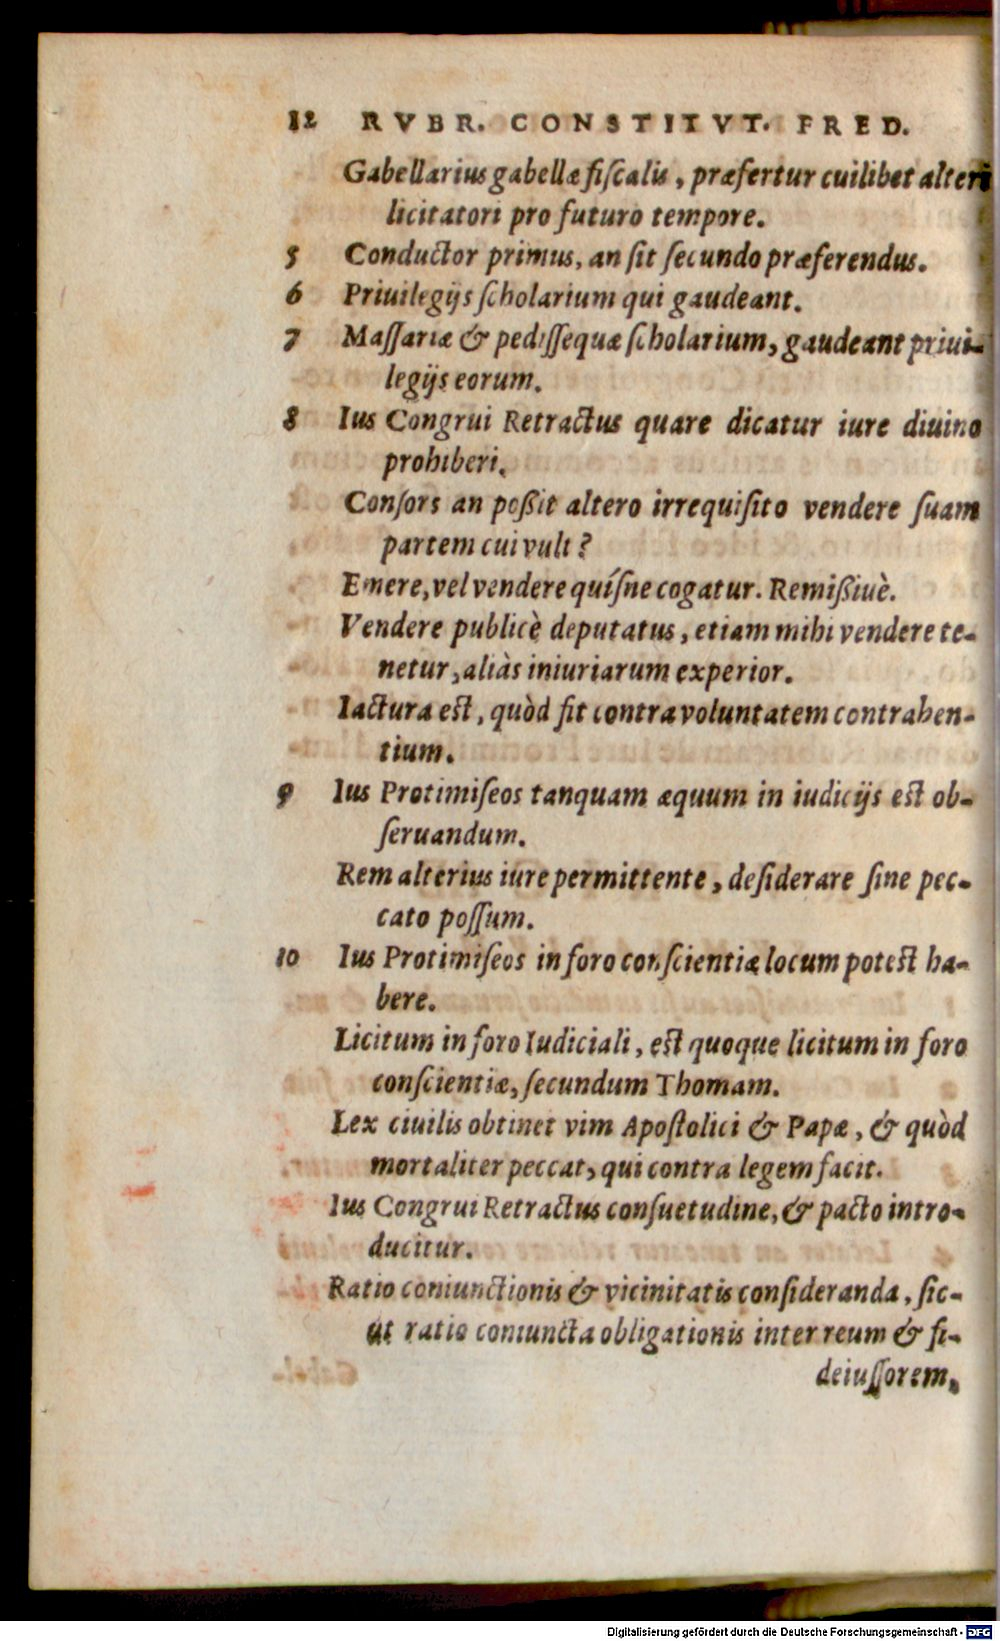 12 RVBR. CONSTITVT. FRED.
Gabellarius gabellæ fiſcalis, præfertur cuilibet alteri
licitatori pro futuro tempore.
5 Conductor primus, an ſit ſecundo præferendus.
6 Priuilegijs ſcholarium qui gaudeant.
7 Maſſariæ & pediſſequæ ſcholarium, gaudeant priui-
legijs eorum.
8 Ius Congrui Retractus quare dicatur iure diuino
prohiberi.
Conſors an poßit altero irrequiſito vendere ſuam
partem cui vult?
Emere, vel vendere quíſne cogatur. Remißiuè.
Vendere publicè deputatus, etiam mihi vendere te-
netur, aliàs iniuriarum experior.
Iactura eſt, quòd fit contra voluntatem contrahen-
tium.
9 Ius Protimiſeos tanquam æquum in iudicijs eſt ob-
ſeruandum.
Rem alterius iure permittente, deſiderare ſine pec-
cato poſſum.
10 Ius Protimiſeos in foro conſcientiæ locum poteſt ha-
bere.
Licitum in foro Iudiciali, eſt quoque licitum in foro
conſcientiæ, ſecundum Thomam.
Lex ciuilis obtinet vim Apoſtolici & Papæ, & quòd
mortaliter peccat, qui contra legem facit.
Ius Congrui Retractus conſuetudine, & pacto intro-
ducitur.
Ratio coniunctionis & vicinitatis conſideranda, ſic-
ut ratio coniuncta obligationis inter reum & fi-
deiuſſorem,
Digitalisierung gefördert durch die Deutsche Forschungsgemeinschaft - DFG